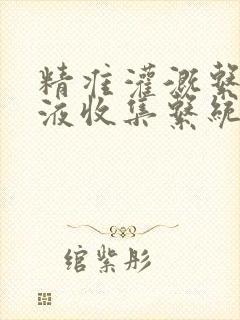 精准灌溉繫
液收集繫統
绾紫彤